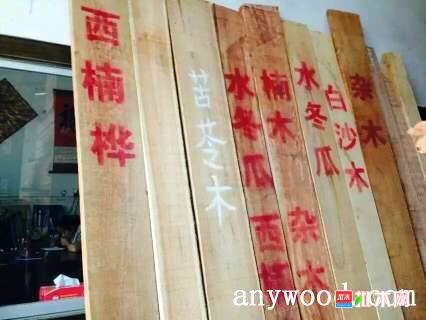 西楠桦
苦苓木
水冬瓜
西
楠木
杂木
水冬瓜
白沙木
杂木
anywood.com